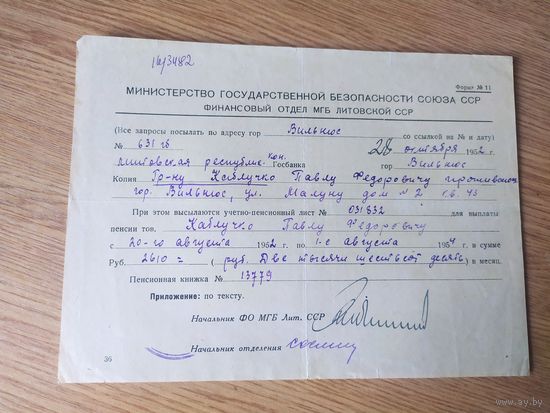 16/3482
Форма № 11
МИНИСТЕРСТВО ГОСУДАРСТВЕННОЙ БЕЗОПАСНОСТИ СОЮЗА ССР
ФИНАНСОВЫЙ ОТДЕЛ МГБ ЛИТОВСКОЙ ССР
(Все запросы посылать по адресу гор Вильнюс со ссылкой на № и дату)
№ 631 28 октября 1952 г.
Литовская республик. кон. Госбанка гор Вильнюс
Копия Гр-ну Каблучко Павлу Федоровичу
гор. Вильнюс, ул. дом № 2 кв. 43
При этом высылаются учетно-пенсионный лист № 031832 для выплаты
пенсии тов. Каблучко Павлу Федоровичу
с 20-го августа 1952 г. по 1-е августа 1954 г. в сумме
Руб. 2610= ( руб. Две тысячи шестьсот десять) в месяц.
Пенсионная книжка № 13779
Приложение: по тексту.
Начальник ФО МГБ Лит. ССР
Начальник отделения
36
www.ay.by